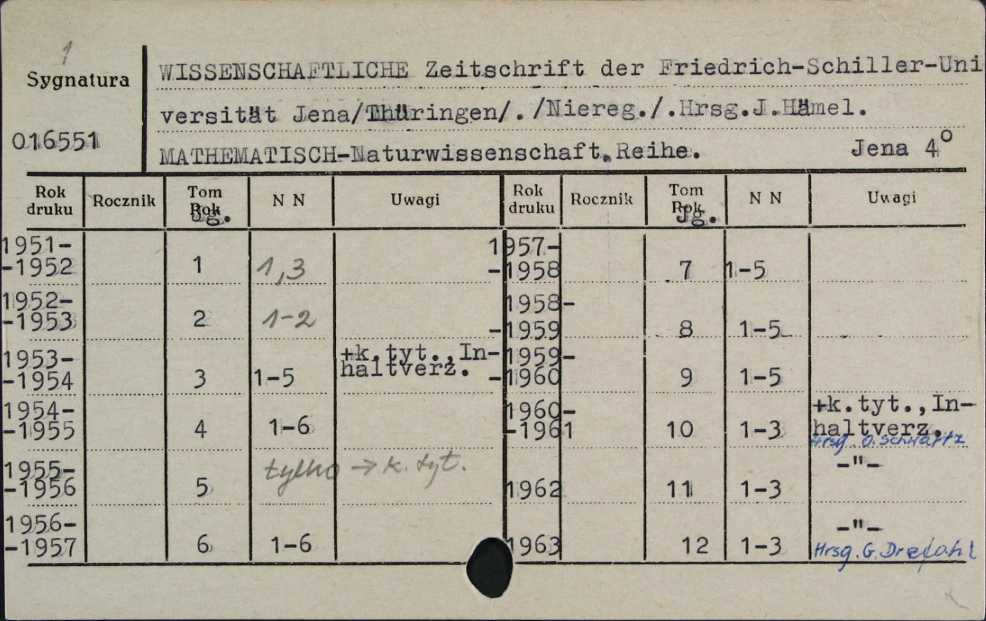 1
Sygnatura
016551
WISSENSCHAFTLICHE Zeitschrift der Friedrich-Schiller-Uni
versität Jena/Thüringen/./Niereg./.Hrsg.J.Hämel.
MATHEMATISCH-Naturwissenschaft.Reihe. Jena 4°
Rok druku Rocznik Tom Rok Jg. N N Uwagi Rok druku Rocznik Tom Rok Jg. N N Uwagi
1951-
-1952 1 1,3
1952-
-1953 2 1-2
1953-
-1954 3 1-5 +k.tyt.,In-
haltverz.
1954-
-1955 4 1-6
1955-
-1956 5 tylko → k. tyt.
1956-
-1957 6 1-6
1957-
-1958 7 1-5
1958-
-1959 8 1-5
1959-
-1960 9 1-5
1960-
-1961 10 1-3 +k.tyt.,In-
haltverz.
Hrsg. O. Schwartz
1962 11 1-3 -"-
1963 12 1-3 -"-
Hrsg. G. Drefahl